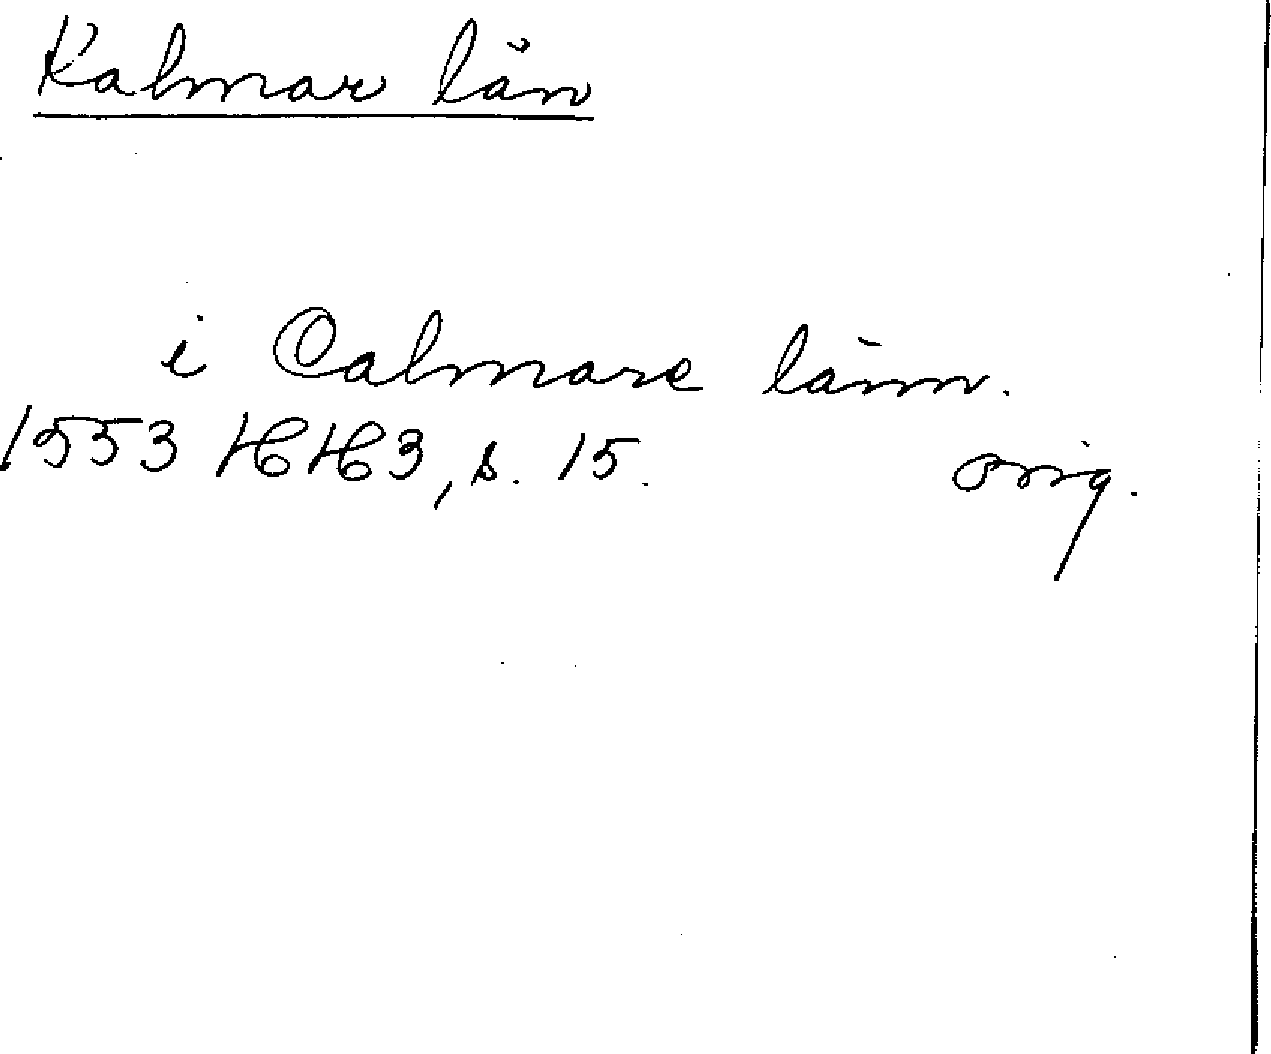 Kalmar län
i Calmare länn.
1553 HH3, s. 15. orig.